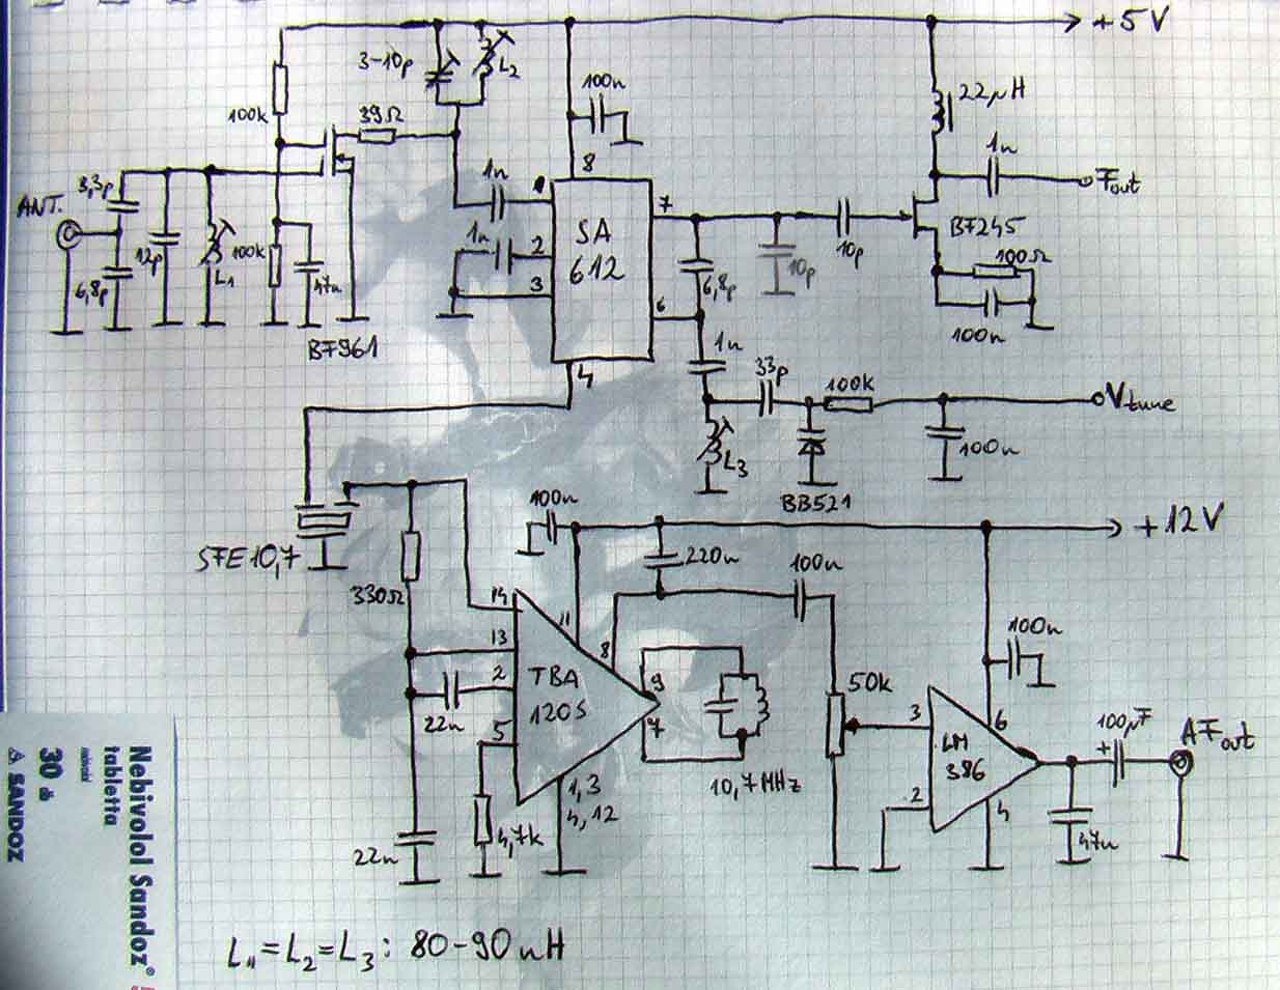 +5V
3-10p
L2
100n
22µH
100k
39Ω
1n
Fout
ANT.
3,3p
12p
6,8p
L1
100k
47n
BF961
1n
1n
8
1
2
3
SA
612
7
6
4
6,8p
10p
10p
BF245
100Ω
100n
1n
33p
100k
Vtune
L3
BB521
100n
SFE10,7
330Ω
100n
+12V
220n
100n
14
13
2
5
11
8
TBA
120S
9
7
1,3
4,12
22n
22n
4,7k
10,7MHz
50k
100n
3
2
6
4
LM
386
+
100µF
AFout
47n
L1=L2=L3: 80-90nH
Nebivolol Sandoz®
tabletta
30 db
SANDOZ